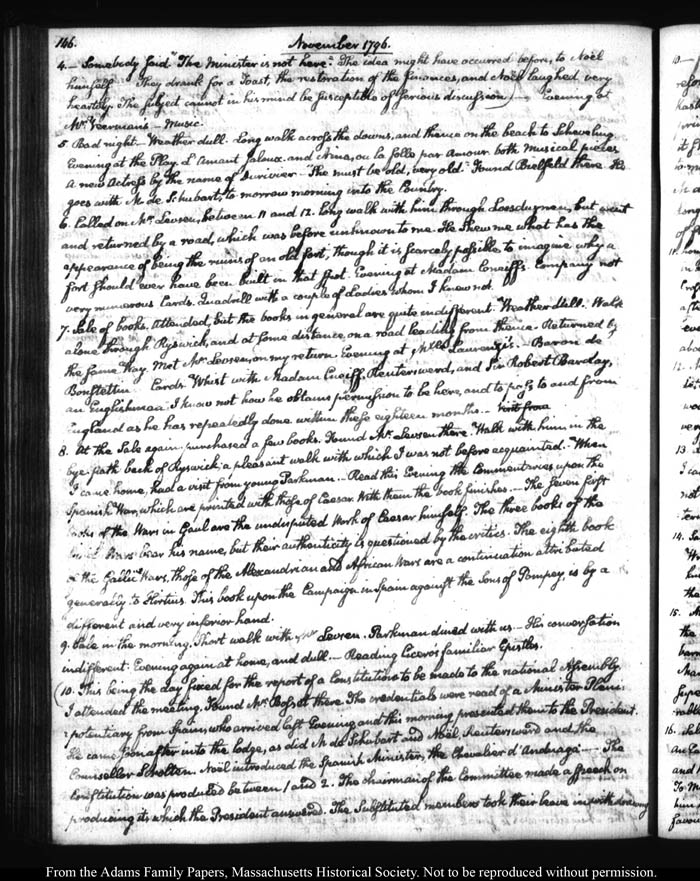 146.
November 1796.
4.— Somebody said "The Minister is not here." The idea might have occurred before, to Noël
himself. They drank for a Toast, the restoration of the finances, and Noël laughed very
heartily. The subject cannot in his mind be susceptible of serious discussion) — Evening at
Mr. Veerman's — Music.
5. Bad night. Weather dull. Long walk across the downs, and thence on the beach to Scheveling
Evening at the Play. L'Amant jaloux. and Nina, ou la folle par Amour both Musical pieces
A new Actress by the name of Durivier. She must be old, very old. Found Bielfeld there. He
goes with M. de Schubart, to morrow morning into the Country.
6. Called on Mr. Levsen, between 11 and 12. Long walk with him through Loosduynen, but went
and returned by a road, which was before unknown to me. He shew me what has the
appearance of being the ruins of an old fort, though it is scarcely possible to imagine why a
fort should ever have been built in that spot. Evening at Madam Conciffs. Company not
very numerous. Cards. Quadrill with a couple of Ladies whom I knew not.
7. Sale of books. Attended, but the books in general are quite indifferent. Weather dull. Walk
alone through Ryswick, and at some distance, on a road leading from thence. Returned by
the same Way. Met Mr. Levsen, on my return. Evening at Baron de
Bonstettin Cards. Whist with Madam Reutersward, and Sir Robert Barclay,
an Englishman. I know not how he obtains permission to be here, and to pass to and from
England as he has repeatedly done within these eighteen months.—
8. At the Sale again, purchased a few books. Found Mr. Levsen there. Walk with him, in the
bye-path back of Ryswick; a pleasant walk with which I was not before acquainted. When
I came home, had a visit from young Parkman.— Read this Evening the Commentaries upon the
Spanish War, which are printed with those of Caesar. With them the book finishes.— The seven first
books of the Wars in Gaul are the undisputed Work of Caesar himself. The three books of the
Civil Wars bear his name, but their authenticity is questioned by the critics. The eighth book
of the Gallic Wars, those of the Alexandrian and African Wars are a continuation attributed
generally to Hirtius. This book upon the Campaign in Spain against the Sons of Pompey, is by a
different and very inferior hand.
9. Sale in the morning. Short walk with Mr Levsen. Parkman dined with us.— His conversation
indifferent. Evening again at home, and dull.— Reading Cicero's familiar Epistles.
(10. This being the day fixed for the report of a Constitution to be made to the national Assembly,
I attended the meeting. Found Mr. Bosset there. The credentials were read of a Minister Pleni:
:potentiary from Spain, who arrived last Evening and this morning presented them to the President.
He came soon after into the lodge, as did M. de Schubart and Noël, Reutersward and the
Counseller Scholten. Noël introduced the Spanish Minister, the Chevalier d'Anduaga.— The
Constitution was produced between 1 and 2. The chairman of the Committee made a speech on
producing it, which the President answered. The Substituted members took their leave in withdrawing
From the Adams Family Papers, Massachusetts Historical Society. Not to be reproduced without permission.